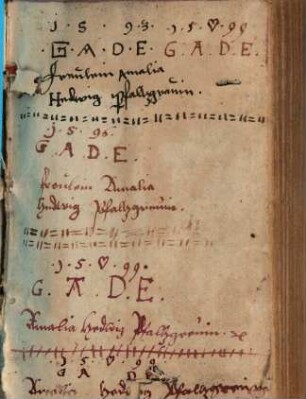 1 · 5 · 9 3 · 1 · 5 · ♡ · 99
G · A · D · E · G · A · D · E ·
Freülein Amalia
Hedwig Pfaltzgreuin ·
1 · 5 · 96 ·
G A · D · E ·
freülein Amalia
Hedwig Pfaltzgreuin ·
· 1 · 5 · ♡ · 99 ·
G · A · D · E ·
Amalia Hedwig Pfaltzgreuin ·
1 · 5 · ♡ · 99
G A D E
Amalia Hedwig Pfaltzgreuin